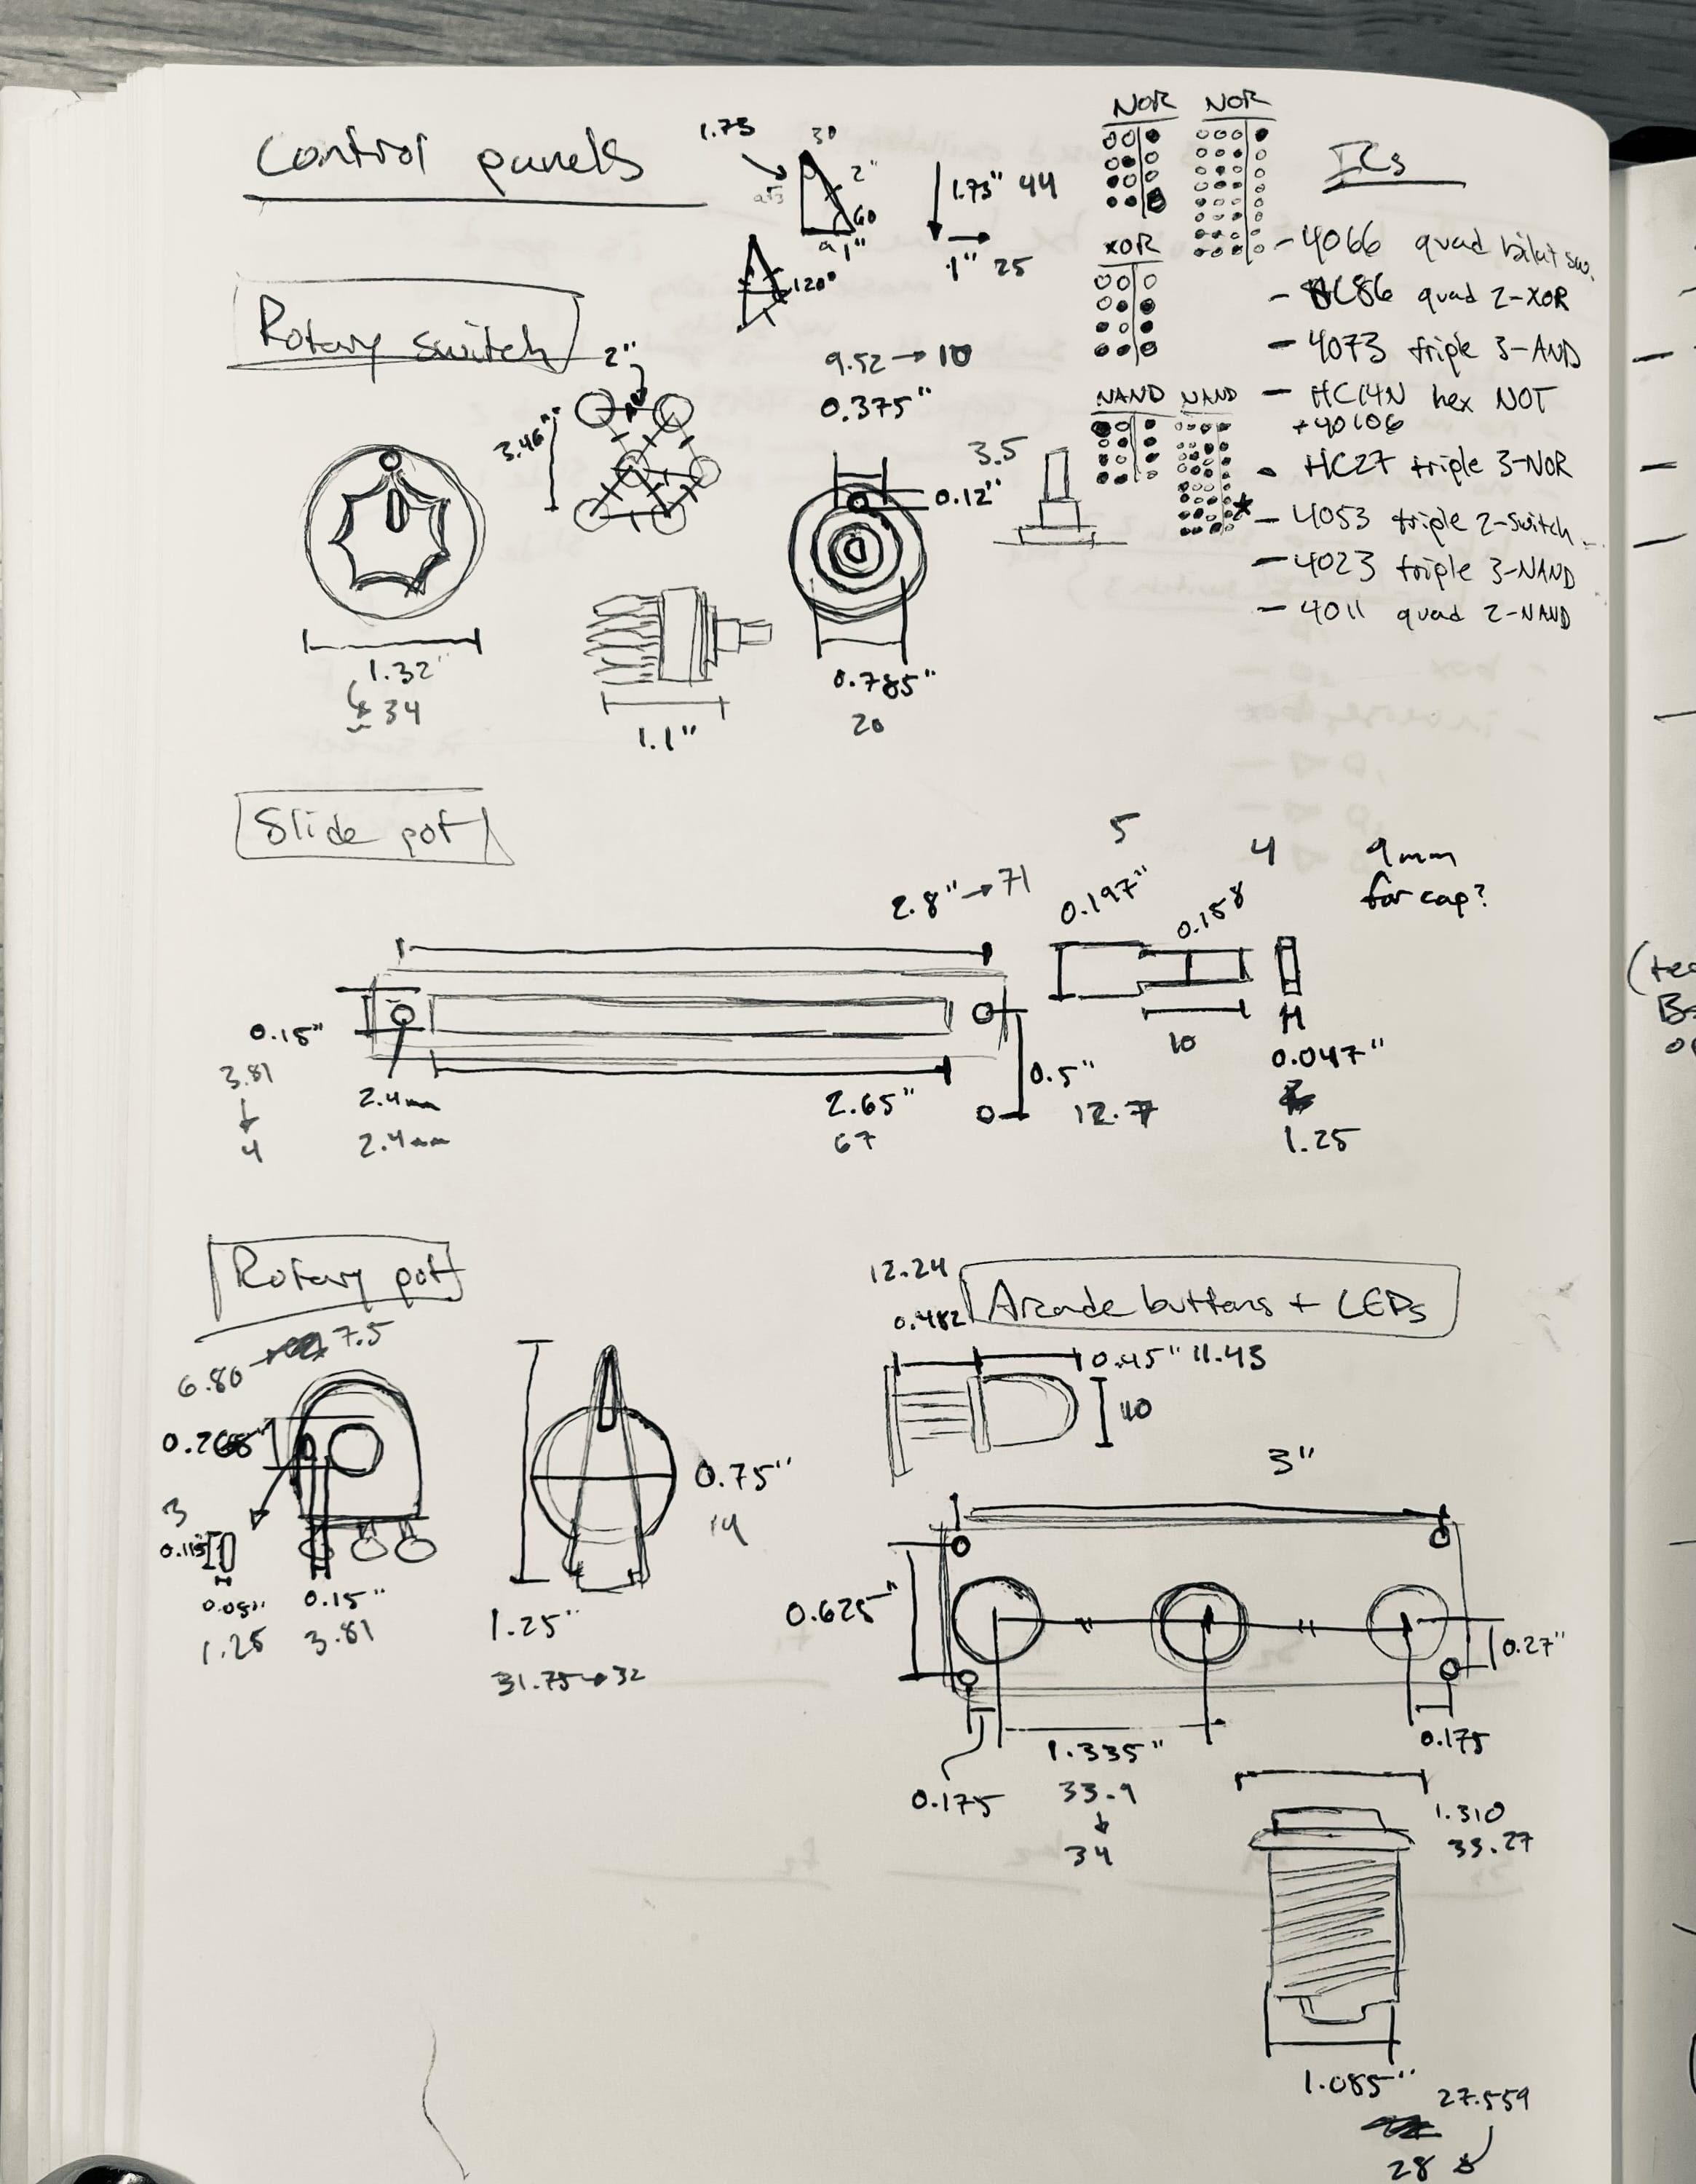 Control panels
1.75
30
2"
60
a
1"
120°
1.73" 44
1" 25
NOR
NOR
XOR
NAND
NAND
ICs
- 4066 quad bilat sw.
- HC86 quad 2-XOR
- 4073 triple 3-AND
- HC14N hex NOT
+40106
HC27 triple 3-NOR
- 4053 triple 2-Switch
- 4023 triple 3-NAND
- 4011 quad 2-NAND
Rotary switch
2"
3.46"
9.52 → 10
0.375"
0.12"
3.5
1.32"
34
1.1"
0.785"
20
Slide pot
2.8" → 71
5
0.197"
4
0.158
9mm
for cap?
0.15"
3.81
4
2.4mm
2.4mm
2.65"
67
0.5"
12.7
10
0.047"
1.25
Rotary pot
6.80 → 7.5
3
0.115
0.05"
1.25
0.15"
3.81
0.75"
19
1.25"
31.75 → 32
Arcade buttons + LEDs
12.24
0.482
0.45" 11.43
10
3"
0.625"
0.27"
0.175
1.335"
33.9
34
0.175
1.310
33.27
1.085"
27.559
28